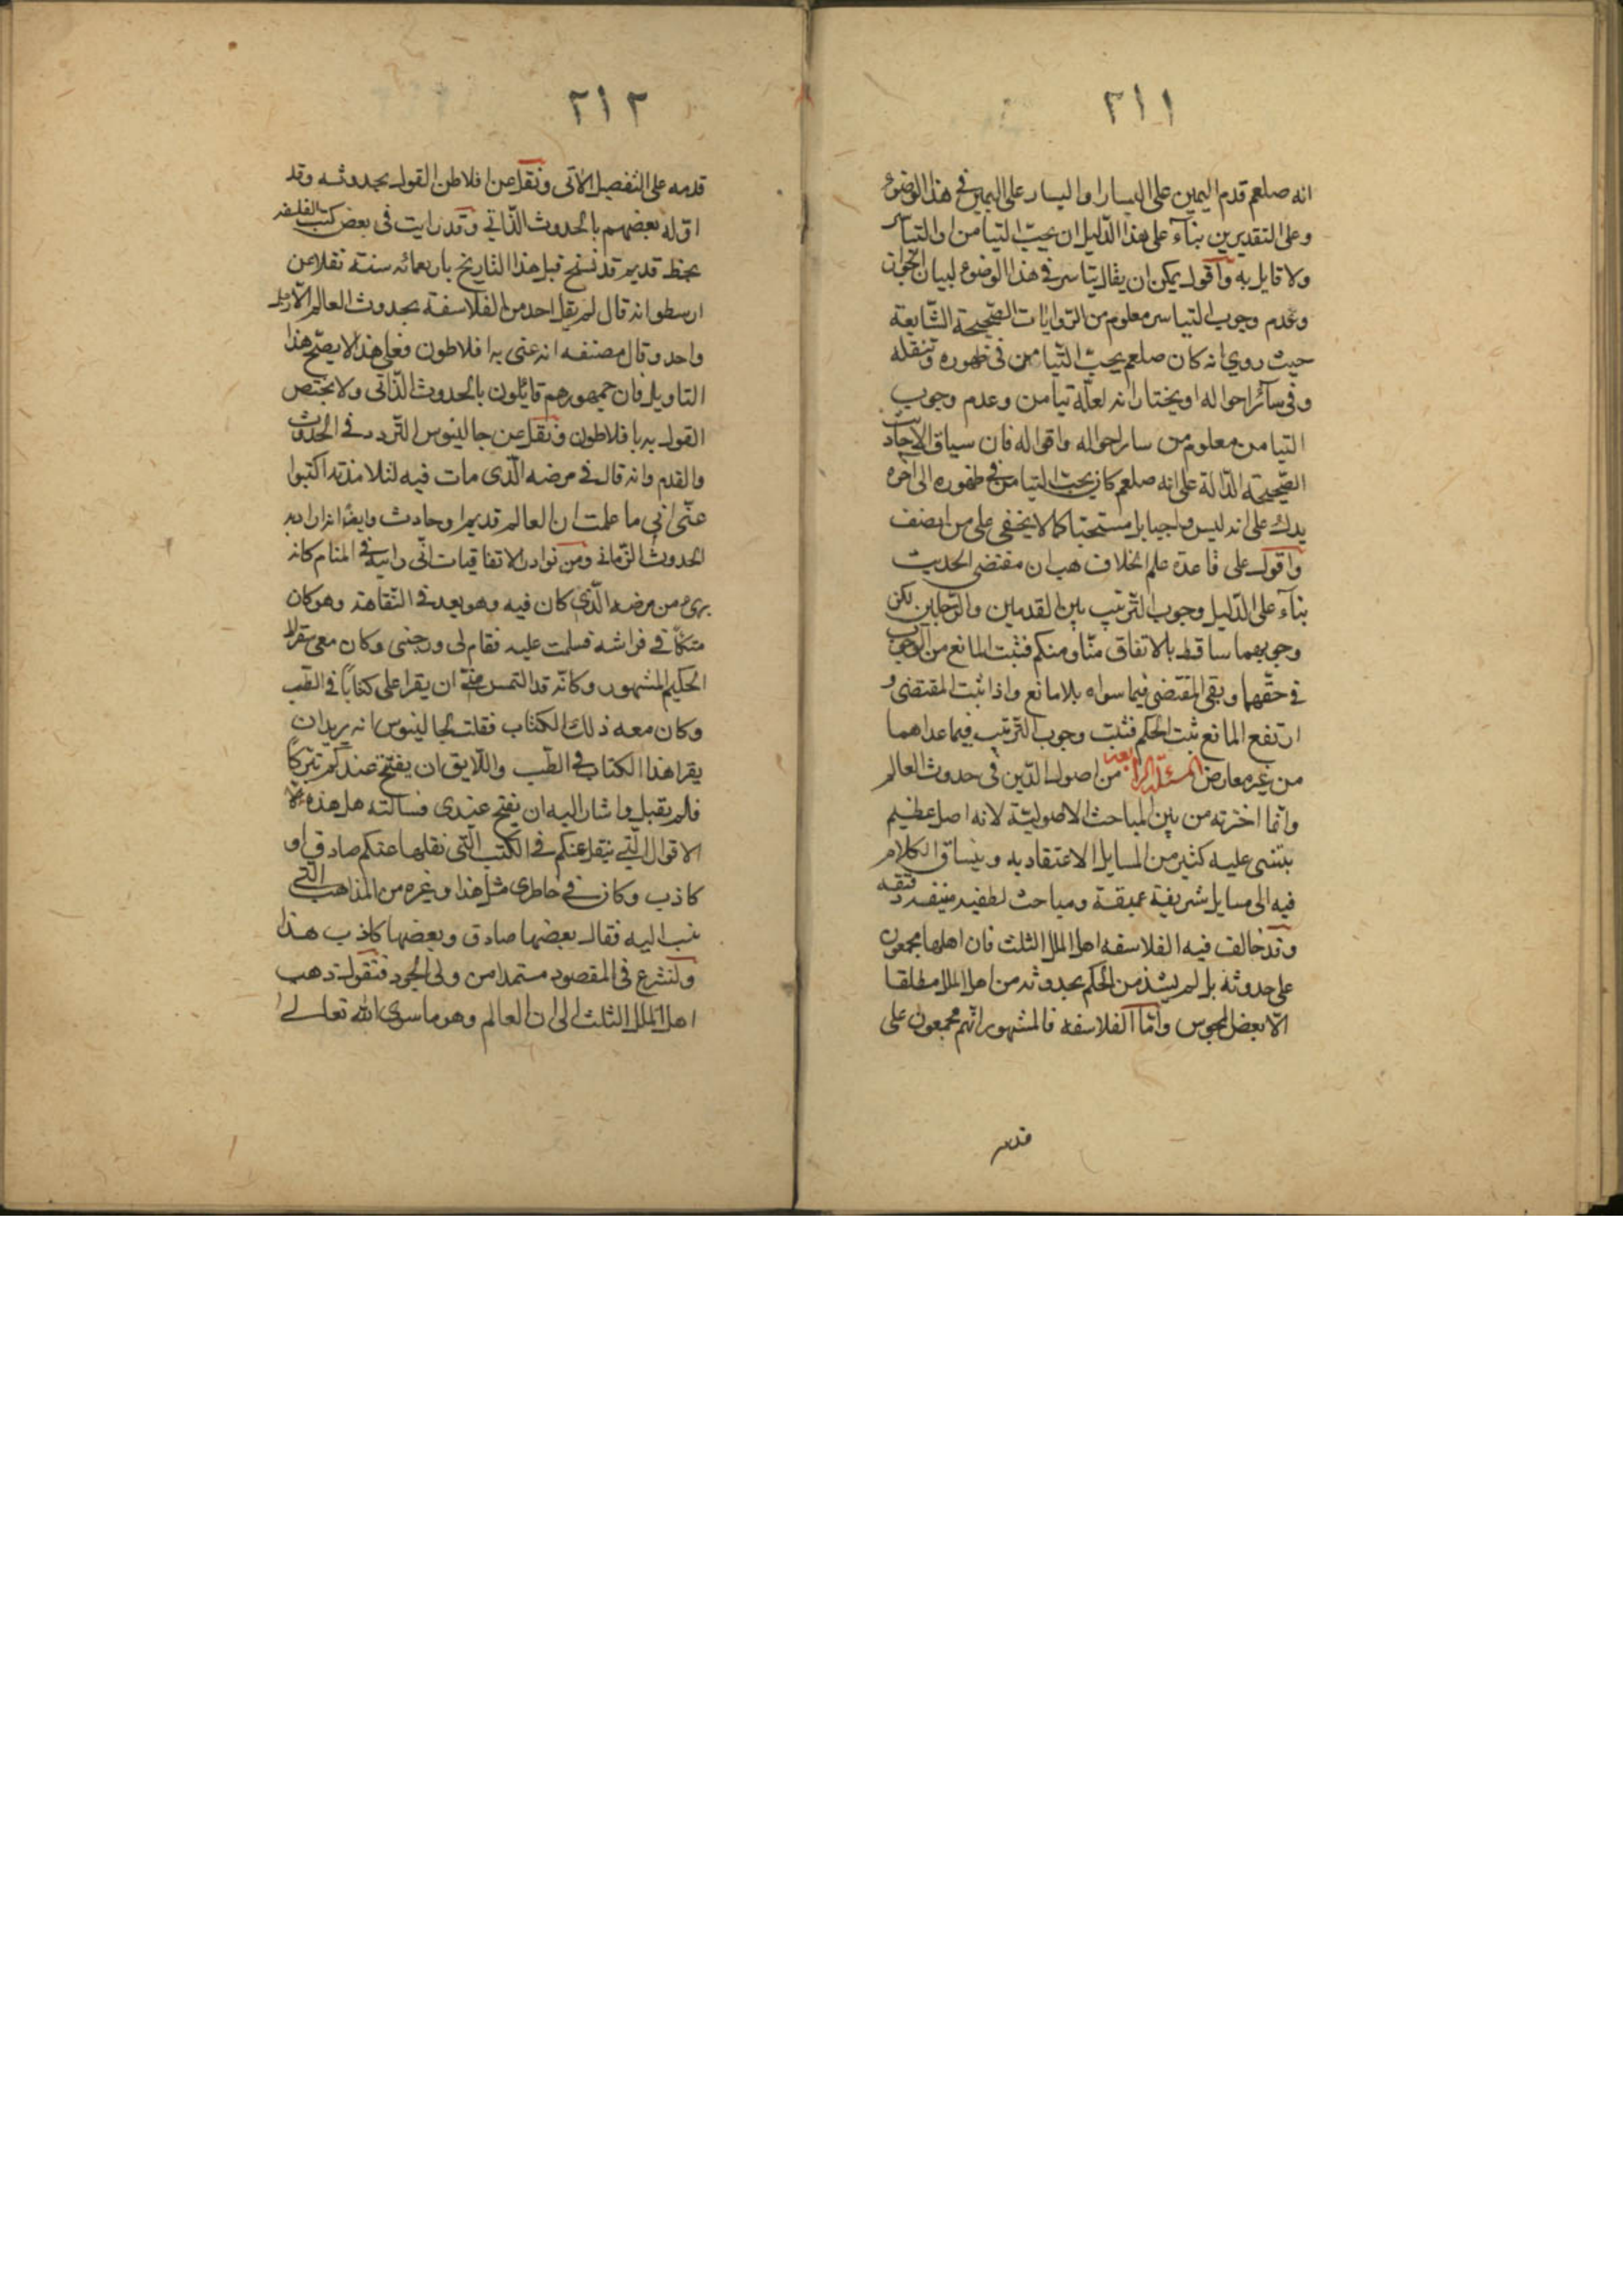 ٢١١
انه صلعم قدم اليمين على اليسار او اليسار على اليمين في هذا الوضوء
وعلى التقديرين بناء على هذا الدليل ان يجب التيامن او التياسر
ولا قايل به واقول يمكن ان يقال تياسر في هذا الوضوء لبيان الجواز
وعدم وجوب التياسر معلوم من الروايات الصحيحة الشايعة
حيث روي انه كان صلعم يحب التيامن في طهوره وتنقله
وفي سائر احواله او يختار انه لعله تيامن وعدم وجوب
التيامن معلوم من ساير احواله واقواله فان سياق الاحاديث
الصحيحة الدالة على انه صلعم كان يحب التيامن في طهوره الى اخره
يدل على انه ليس واجبا بل مستحبا كما لا يخفى على من انصف
واقول على قاعدة علم الخلاف هب ان مقتضى الحديث
بناء على الدليل وجوب الترتيب بين القدمين والرجلين لكن
وجوبهما ساقط بالاتفاق منا ومنكم فثبت المانع من الوجوب
في حقهما وبقى المقتضى فيما سواه بلا مانع واذا ثبت المقتضى و
ارتفع المانع ثبت الحكم فثبت وجوب الترتيب فيما عداهما
من غير معارض المسئلة الرابعة من اصول الدين في حدوث العالم
وانما اخترته من بين المباحث الاصولية لانه اصل عظيم
يبتنى عليه كثير من المسايل الاعتقاديه وينساق الكلام
فيه الى مسايل شريفة عميقة ومباحث لطفيه منيفه دقيقه
وقد خالف فيه الفلاسفه اهل الملل الثلث فان اهلها مجمعون
على حدوثه بل لم يشذ من الحكم بحدوثه من اهل الملل مطلقا
الا بعض المجوس واما الفلاسفه فالمشهور انهم مجمعون على
قدمه
٢١٢
قدمه على التفصيل الآتى ونقل عن افلاطن القول بحدوثه وقد
اوله بعضهم بالحدوث الذاتي وقد رايت في بعض كتب الفلسفه
بخط قديم قد نسخ قبل هذا التاريخ باربعمائه سنة نقلا عن
ارسطو انه قال لم يقل احد من الفلاسفة بحدوث العالم الا رجل
واحد وقال مصنفه انه عنى به افلاطون وفعلى هذا لا يصح هذا
التاويل فان جمهورهم قايلون بالحدوث الذاتى ولا يختص
القول به بافلاطون ونقل عن جالينوس التردد في الحدوث
والقدم وانه قال في مرضه الذى مات فيه لتلامذته اكتبوا
عنى انى ما علمت ان العالم قديم او حادث وايضا انه اراد به
الحدوث الزمانى ومن نوادر الاتفاقيات انى رايته في المنام كانه
برى من مرضه الذى كان فيه وهو بعد في النقاهة وهو كان
متكأ في فراشه فسلمت عليه فقام لى ورحبنى وكان معى سقراط
الحكيم المشهور وكانه قد التمس منى ان يقرا على كتابا في الطب
وكان معه ذلك الكتاب فقلت لجالينوس انه يريد ان
يقرا هذا الكتاب في الطب واللايق ان يفتح عندكم تبركا
فلم يقبل واشار اليه ان يفتح عندى فسالته هل هذه
الاقوال التي ينقل عنكم في الكتب التى نقلها عنكم صادق او
كاذب وكان في خاطرى مثل هذا وغيره من المذاهب التي
نسب اليه فقال بعضها صادق وبعضها كاذب هذا
ولنشرع في المقصود مستمدا من ولى الجود فنقول ذهب
اهل الملل الثلث الى ان العالم وهو ما سوى الله تعالى